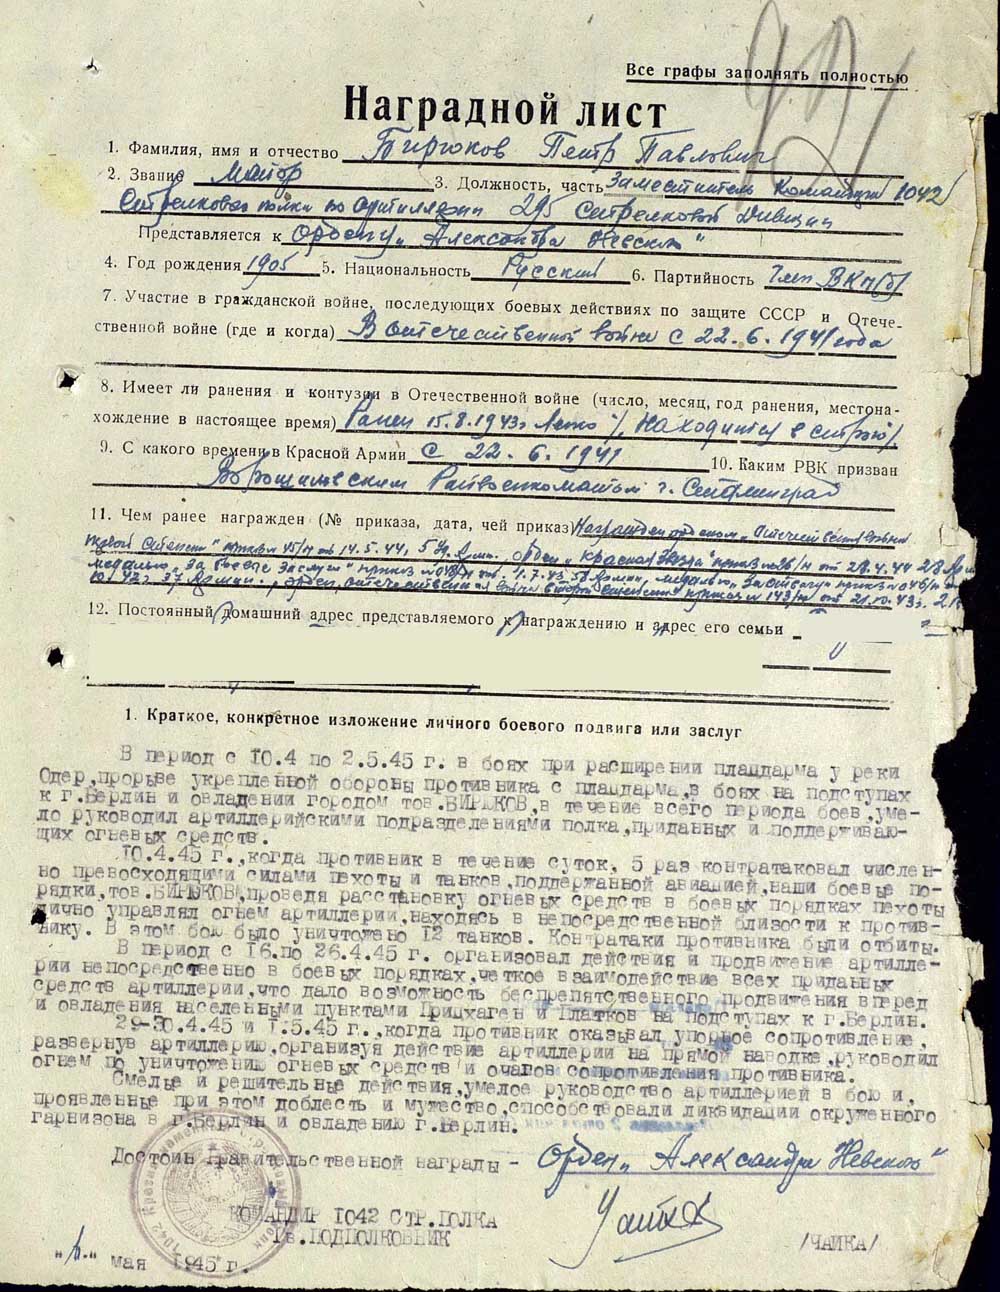 Все графы заполнять полностью
Наградной лист
1. Фамилия, имя и отчество Бирюков Петр Павлович
2. Звание Майор 3. Должность, часть Заместитель Командира 1042
Стрелкового полка по артиллерии 295 Стрелковой Дивизии
Представляется к Ордену „Александра Невского"
4. Год рождения 1905 5. Национальность Русский 6. Партийность Член ВКП(б)
7. Участие в гражданской войне, последующих боевых действиях по защите СССР и Отече-
ственной войне (где и когда) В отечественной войне с 22.6.1941 года
8. Имеет ли ранения и контузии в Отечественной войне (число, месяц, год ранения, местона-
хождение в настоящее время) Ранен 15.8.1943г Легко /Находится в строю/
9. С какого времени в Красной Армии с 22.6.1941 10. Каким РВК призван
Ворошиловским Райвоенкоматом г. Сталинград
11. Чем ранее награжден (№ приказа, дата, чей приказ) Награжден орденом „Отечественная война
первой степени" приказ 45/н от 14.5.44, 5 Уд. Арм. орден „Красная Звезда" приказ №26/н от 28.4.44 28 Арм
медалью „За боевые заслуги" приказ от 1.7.43 58 Армии, медалью „За отвагу" приказ №046/н от
10. 42г 37 Армии, орден „Отечественная война второй степени" приказ № 143/н от 21.10.43г.
12. Постоянный домашний адрес представляемого к награждению и адрес его семьи
1. Краткое, конкретное изложение личного боевого подвига или заслуг
В период с 10.4 по 2.5.45 г. в боях при расширении плацдарма у реки
Одер, прорыве укрепленной обороны противника с плацдарма, в боях на подступах
к г.Берлин и овладении городом тов.БИРЮКОВ, в течение всего периода боев, уме-
ло руководил артиллерийскими подразделениями полка, приданных и поддерживаю-
щих огневых средств.
10.4.45 г., когда противник в течение суток, 5 раз контратаковал числен-
но превосходящими силами пехоты и танков, поддержанной авиацией, наши боевые по-
рядки, тов.БИРЮКОВ, проведя расстановку огневых средств в боевых порядках пехоты
лично управлял огнем артиллерии, находясь в непосредственной близости к против-
нику. В этом бою было уничтожено 12 танков. Контратаки противника были отбиты.
В период с 16.по 26.4.45 г. организовал действия и продвижение артилле-
рии непосредственно в боевых порядках, четкое взаимодействие всех приданных
средств артиллерии, что дало возможность беспрепятственного продвижения вперед
и овладения населенными пунктами Прицхаген и Платков на подступах к г.Берлин.
29-30.4.45 и 1.5.45 г., когда противник оказывал упорное сопротивление,
развернув артиллерию, организуя действие артиллерии на прямой наводке, руководил
огнем по уничтожению огневых средств и очагов сопротивления противника.
Смелые и решительные действия, умелое руководство артиллерией в бою и,
проявленные при этом доблесть и мужество, способствовали ликвидации окруженного
гарнизона в г.Берлин и овладению г.Берлин.
Достоин правительственной награды - Орден „Александра Невского"
КОМАНДИР 1042 СТР.ПОЛКА
Гв.ПОДПОЛКОВНИК /ЧАЙКА/
мая 1945 г.